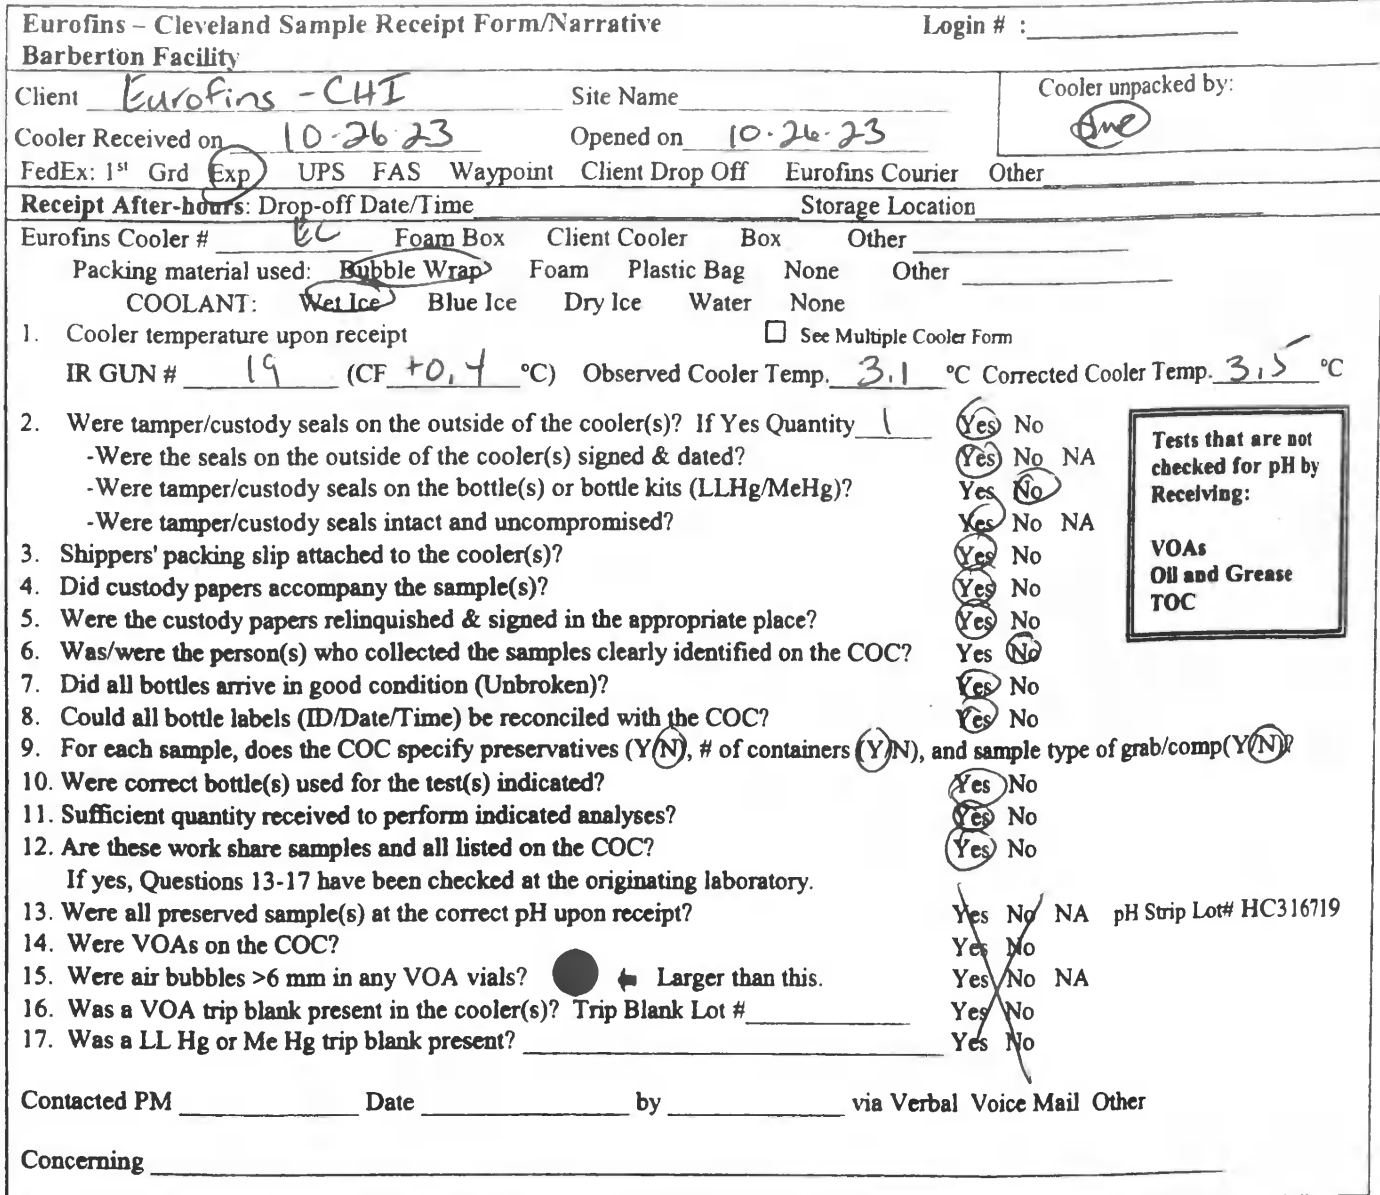 Eurofins – Cleveland Sample Receipt Form/Narrative Login # :
Barberton Facility
Client Eurofins - CHI Site Name Cooler unpacked by:
Cooler Received on 10-26-23 Opened on 10-26-23
FedEx: 1st Grd Exp UPS FAS Waypoint Client Drop Off Eurofins Courier Other
Receipt After-hours: Drop-off Date/Time Storage Location
Eurofins Cooler # EC Foam Box Client Cooler Box Other
Packing material used: Bubble Wrap Foam Plastic Bag None Other
COOLANT: Wet Ice Blue Ice Dry Ice Water None
1. Cooler temperature upon receipt ☐ See Multiple Cooler Form
IR GUN # 19 (CF +0.4 °C) Observed Cooler Temp. 3.1 °C Corrected Cooler Temp. 3.5 °C
2. Were tamper/custody seals on the outside of the cooler(s)? If Yes Quantity 1 Yes No
-Were the seals on the outside of the cooler(s) signed & dated? Yes No NA
-Were tamper/custody seals on the bottle(s) or bottle kits (LLHg/MeHg)? Yes No
-Were tamper/custody seals intact and uncompromised? Yes No NA
3. Shippers' packing slip attached to the cooler(s)? Yes No
4. Did custody papers accompany the sample(s)? Yes No
5. Were the custody papers relinquished & signed in the appropriate place? Yes No
6. Was/were the person(s) who collected the samples clearly identified on the COC? Yes No
7. Did all bottles arrive in good condition (Unbroken)? Yes No
8. Could all bottle labels (ID/Date/Time) be reconciled with the COC? Yes No
Tests that are not
checked for pH by
Receiving:
VOAs
Oil and Grease
TOC
9. For each sample, does the COC specify preservatives (Y/N), # of containers (Y/N), and sample type of grab/comp(Y/N)?
10. Were correct bottle(s) used for the test(s) indicated? Yes No
11. Sufficient quantity received to perform indicated analyses? Yes No
12. Are these work share samples and all listed on the COC? Yes No
If yes, Questions 13-17 have been checked at the originating laboratory.
13. Were all preserved sample(s) at the correct pH upon receipt? Yes No NA pH Strip Lot# HC316719
14. Were VOAs on the COC? Yes No
15. Were air bubbles >6 mm in any VOA vials? Larger than this. Yes No NA
16. Was a VOA trip blank present in the cooler(s)? Trip Blank Lot # Yes No
17. Was a LL Hg or Me Hg trip blank present? Yes No
Contacted PM Date by via Verbal Voice Mail Other
Concerning